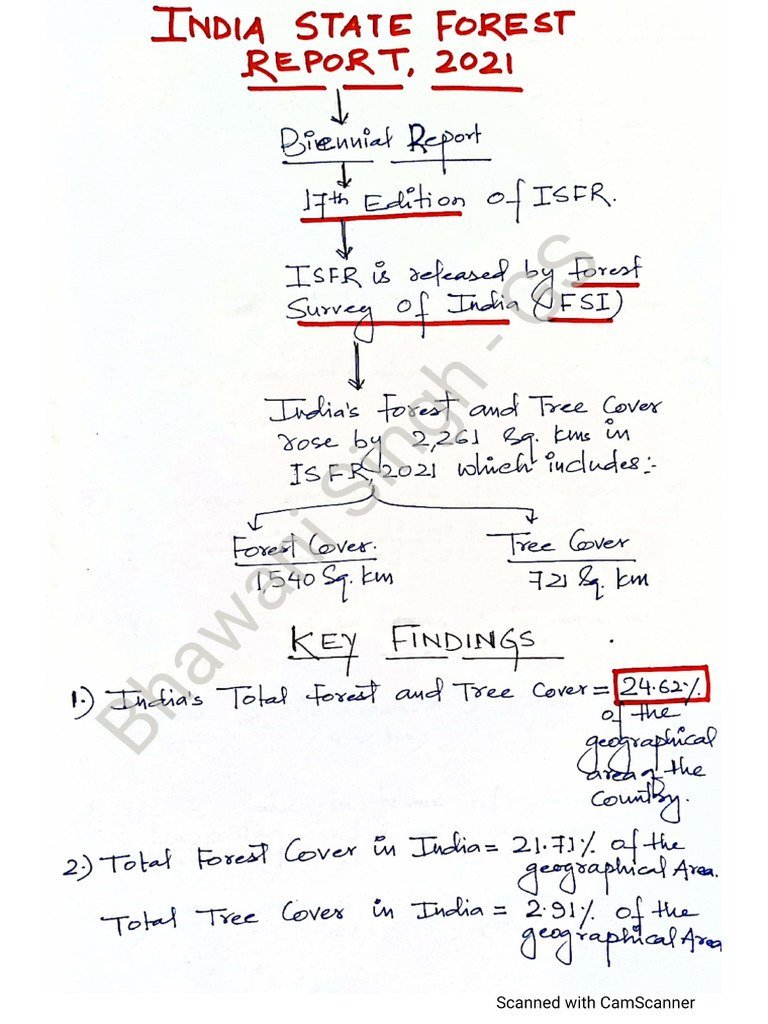 INDIA STATE FOREST
REPORT, 2021
Biennial Report
17th Edition of ISFR.
ISFR is released by Forest
Survey of India (FSI)
India's Forest and Tree Cover
rose by 2,261 Sq. kms in
ISFR, 2021 which includes:-
Forest Cover. Tree Cover
1,540 Sq. km 721 Sq. km
KEY FINDINGS
1.) India's Total Forest and Tree Cover = 24.62%
of the
geographical
area of the
Country.
2.) Total Forest Cover in India = 21.71% of the
geographical Area.
Total Tree Cover in India = 2.91% of the
geographical Area
Bhawani Singh - GS
Scanned with CamScanner